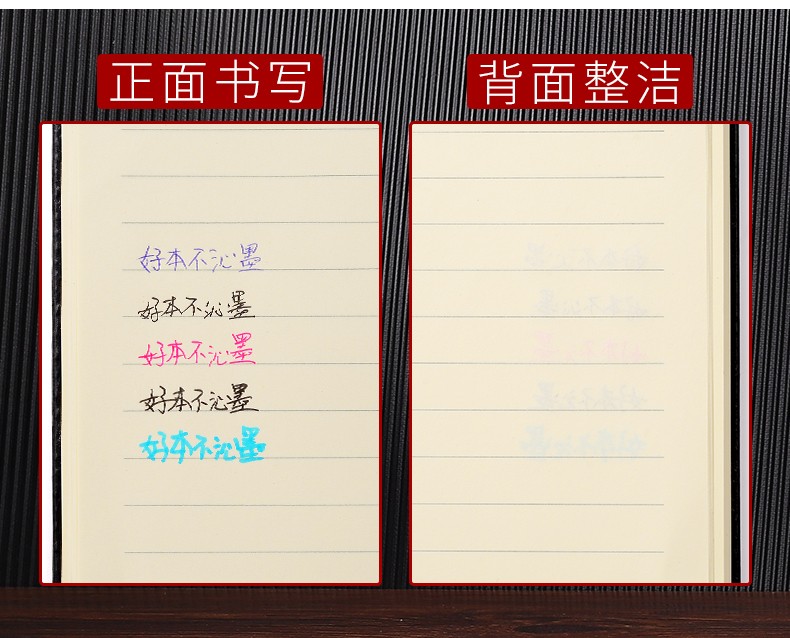 正面书写
背面整洁
好本不沁墨
好本不沁墨
好本不沁墨
好本不沁墨
好本不沁墨